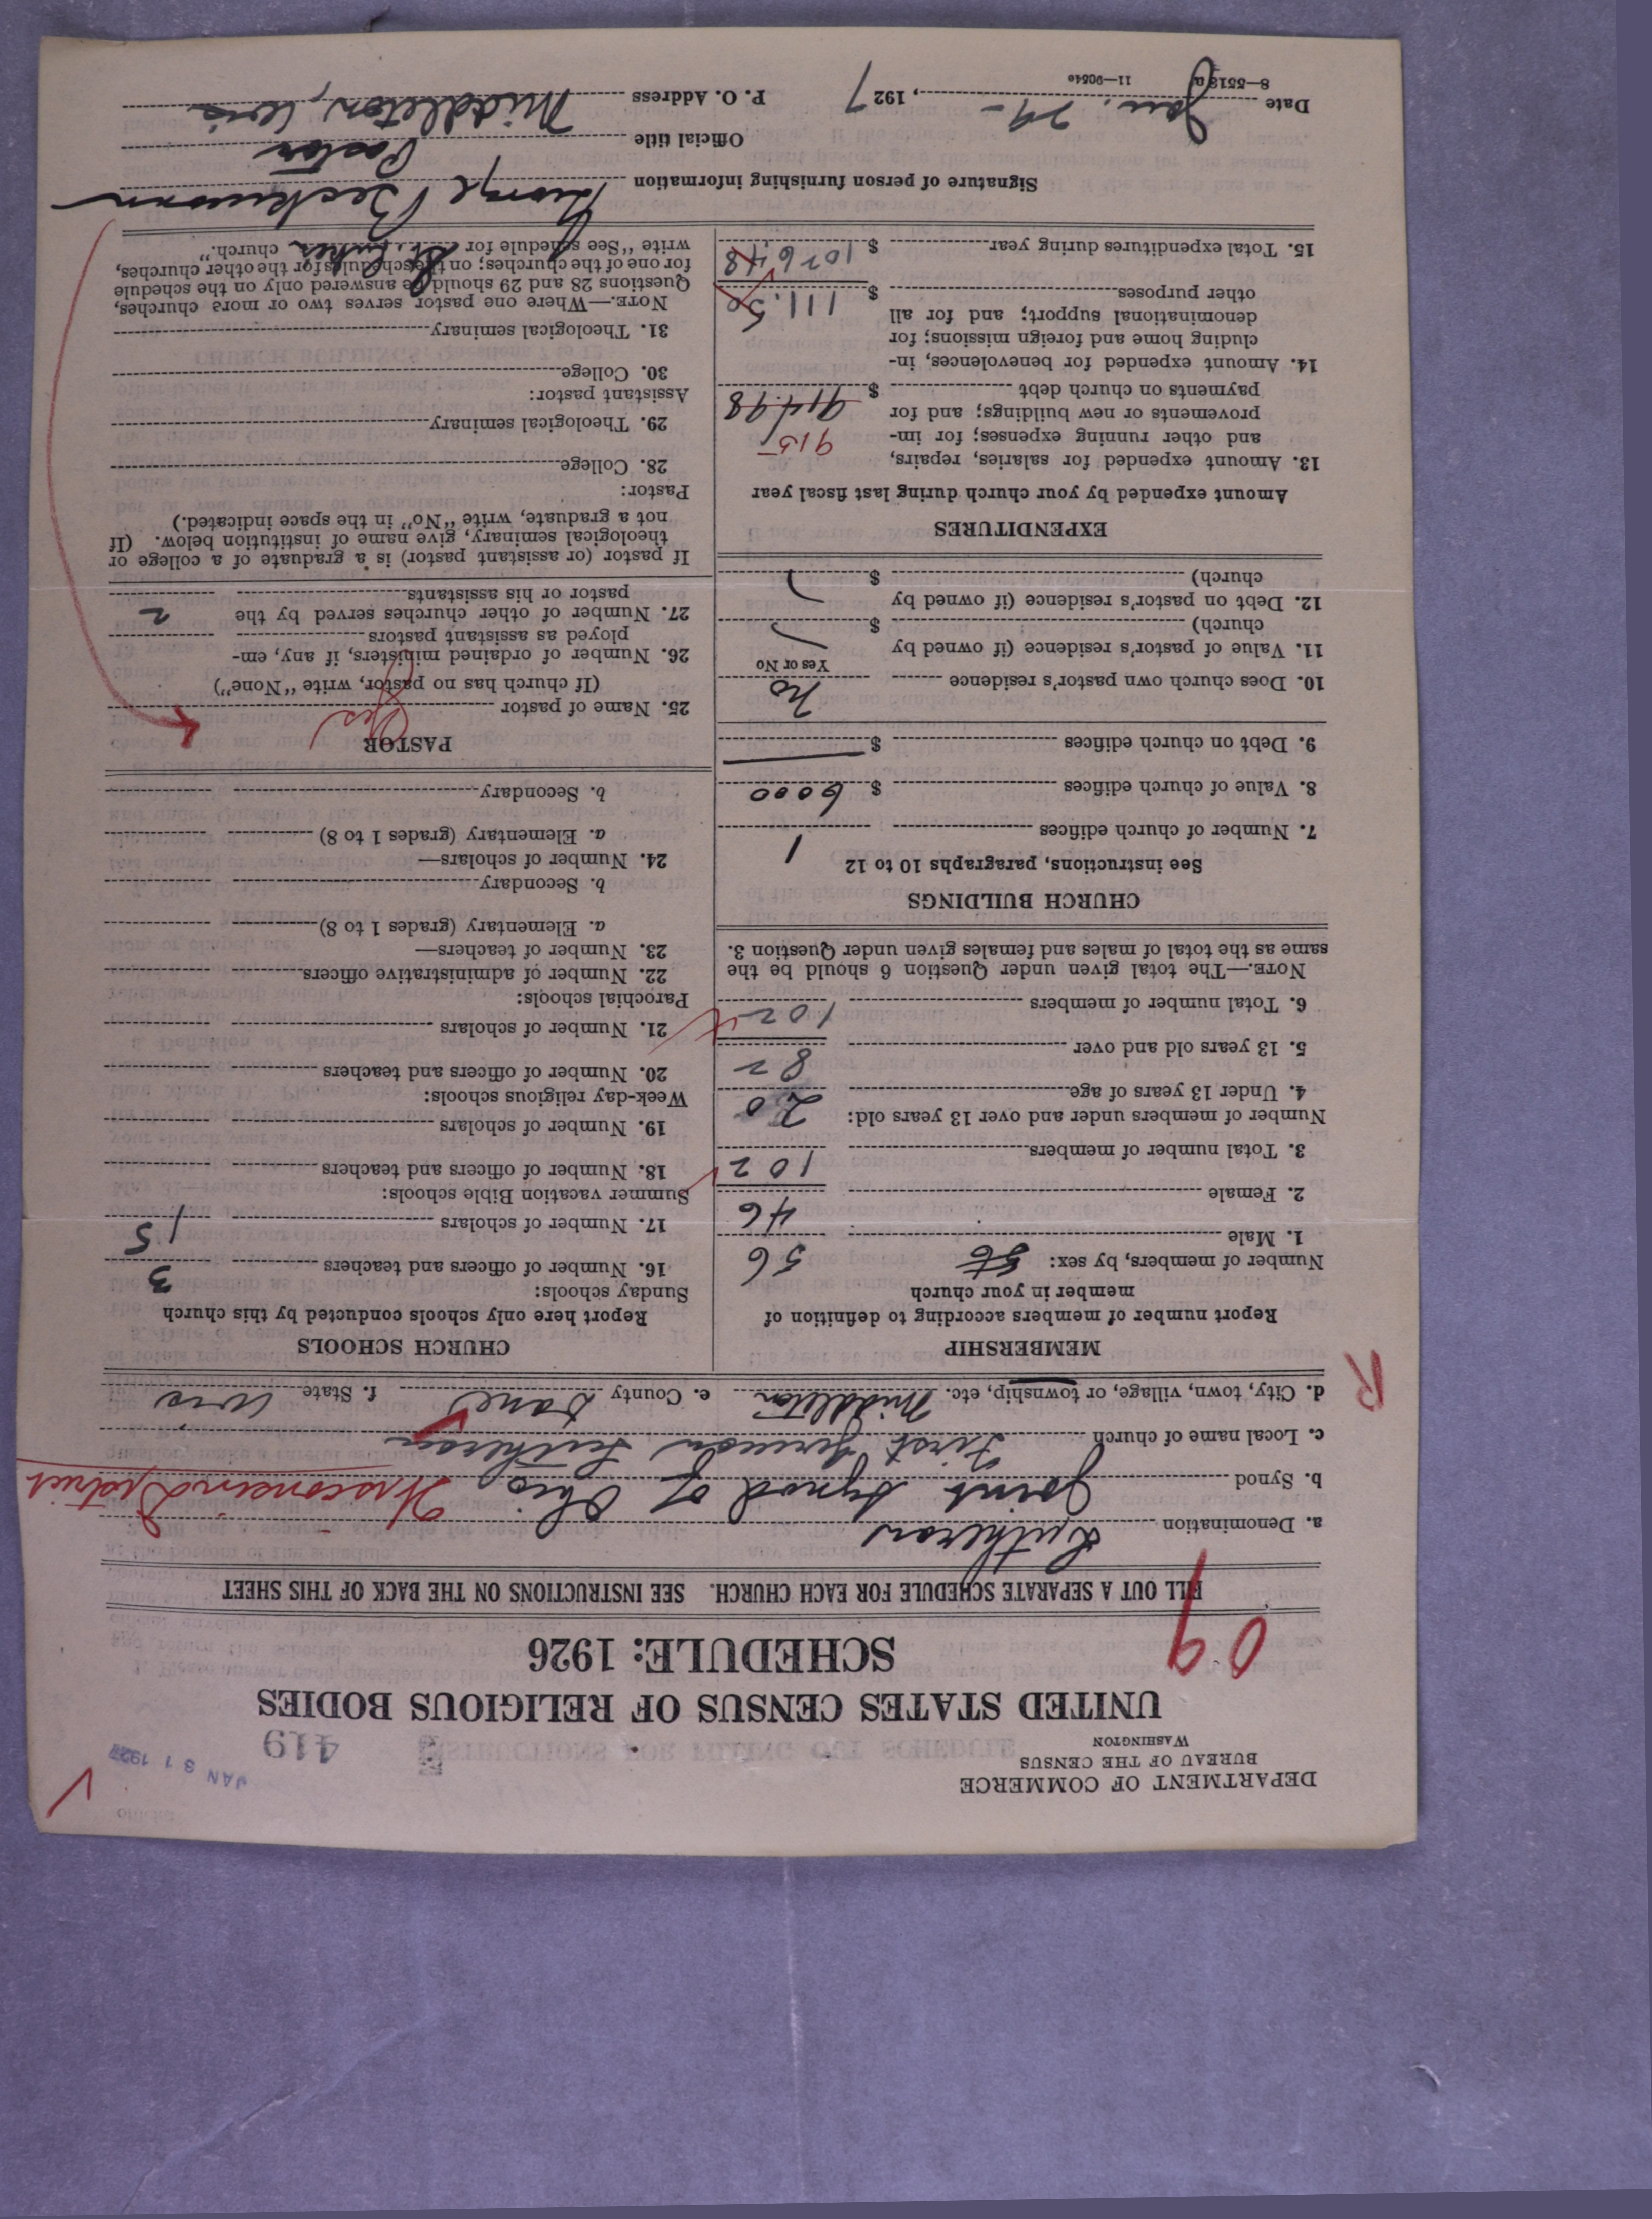 DEPARTMENT OF COMMERCE
BUREAU OF THE CENSUS
WASHINGTON
419
JAN 31 1927
UNITED STATES CENSUS OF RELIGIOUS BODIES
SCHEDULE: 1926
09
FILL OUT A SEPARATE SCHEDULE FOR EACH CHURCH. SEE INSTRUCTIONS ON THE BACK OF THIS SHEET
a. Denomination Lutheran
b. Synod Joint Synod of Ohio, Wisconsin District
c. Local name of church First German Lutheran
d. City, town, village, or township, etc. Middleton e. County Dane f. State Wis
R
MEMBERSHIP
Report number of members according to definition of
member in your church
Number of members, by sex: 56
1. Male 56
2. Female 46
3. Total number of members 102
Number of members under and over 13 years old:
4. Under 13 years of age 20
5. 13 years old and over 82
6. Total number of members 102
NOTE.—The total given under Question 6 should be the
same as the total of males and females given under Question 3.
CHURCH BUILDINGS
See instructions, paragraphs 10 to 12
7. Number of church edifices 1
8. Value of church edifices $ 6000
9. Debt on church edifices $
10. Does church own pastor's residence No
Yes or No
11. Value of pastor's residence (if owned by
church) $
12. Debt on pastor's residence (if owned by
church) $
EXPENDITURES
Amount expended by your church during last fiscal year
13. Amount expended for salaries, repairs,
and other running expenses; for im-
provements or new buildings; and for
payments on church debt $ 914.98
915
14. Amount expended for benevolences, in-
cluding home and foreign missions; for
denominational support; and for all
other purposes $ 111.50
15. Total expenditures during year $ 1026.48
CHURCH SCHOOLS
Report here only schools conducted by this church
Sunday schools:
16. Number of officers and teachers 3
17. Number of scholars 15
Summer vacation Bible schools:
18. Number of officers and teachers
19. Number of scholars
Week-day religious schools:
20. Number of officers and teachers
21. Number of scholars
Parochial schools:
22. Number of administrative officers
23. Number of teachers—
a. Elementary (grades 1 to 8)
b. Secondary
24. Number of scholars—
a. Elementary (grades 1 to 8)
b. Secondary
PASTOR
25. Name of pastor Yes
(If church has no pastor, write "None")
26. Number of ordained ministers, if any, em-
ployed as assistant pastors
27. Number of other churches served by the
pastor or his assistants 2
If pastor (or assistant pastor) is a graduate of a college or
theological seminary, give name of institution below. (If
not a graduate, write "No" in the space indicated.)
Pastor:
28. College
29. Theological seminary
Assistant pastor:
30. College
31. Theological seminary
NOTE.—Where one pastor serves two or more churches,
Questions 28 and 29 should be answered only on the schedule
for one of the churches; on the schedules for the other churches,
write "See schedule for St. Lukes church."
Signature of person furnishing information George Beckmann
Official title Pastor
Date Jan. 29-, 1927 P. O. Address Middleton, Wis
8—5518a 11—9054e